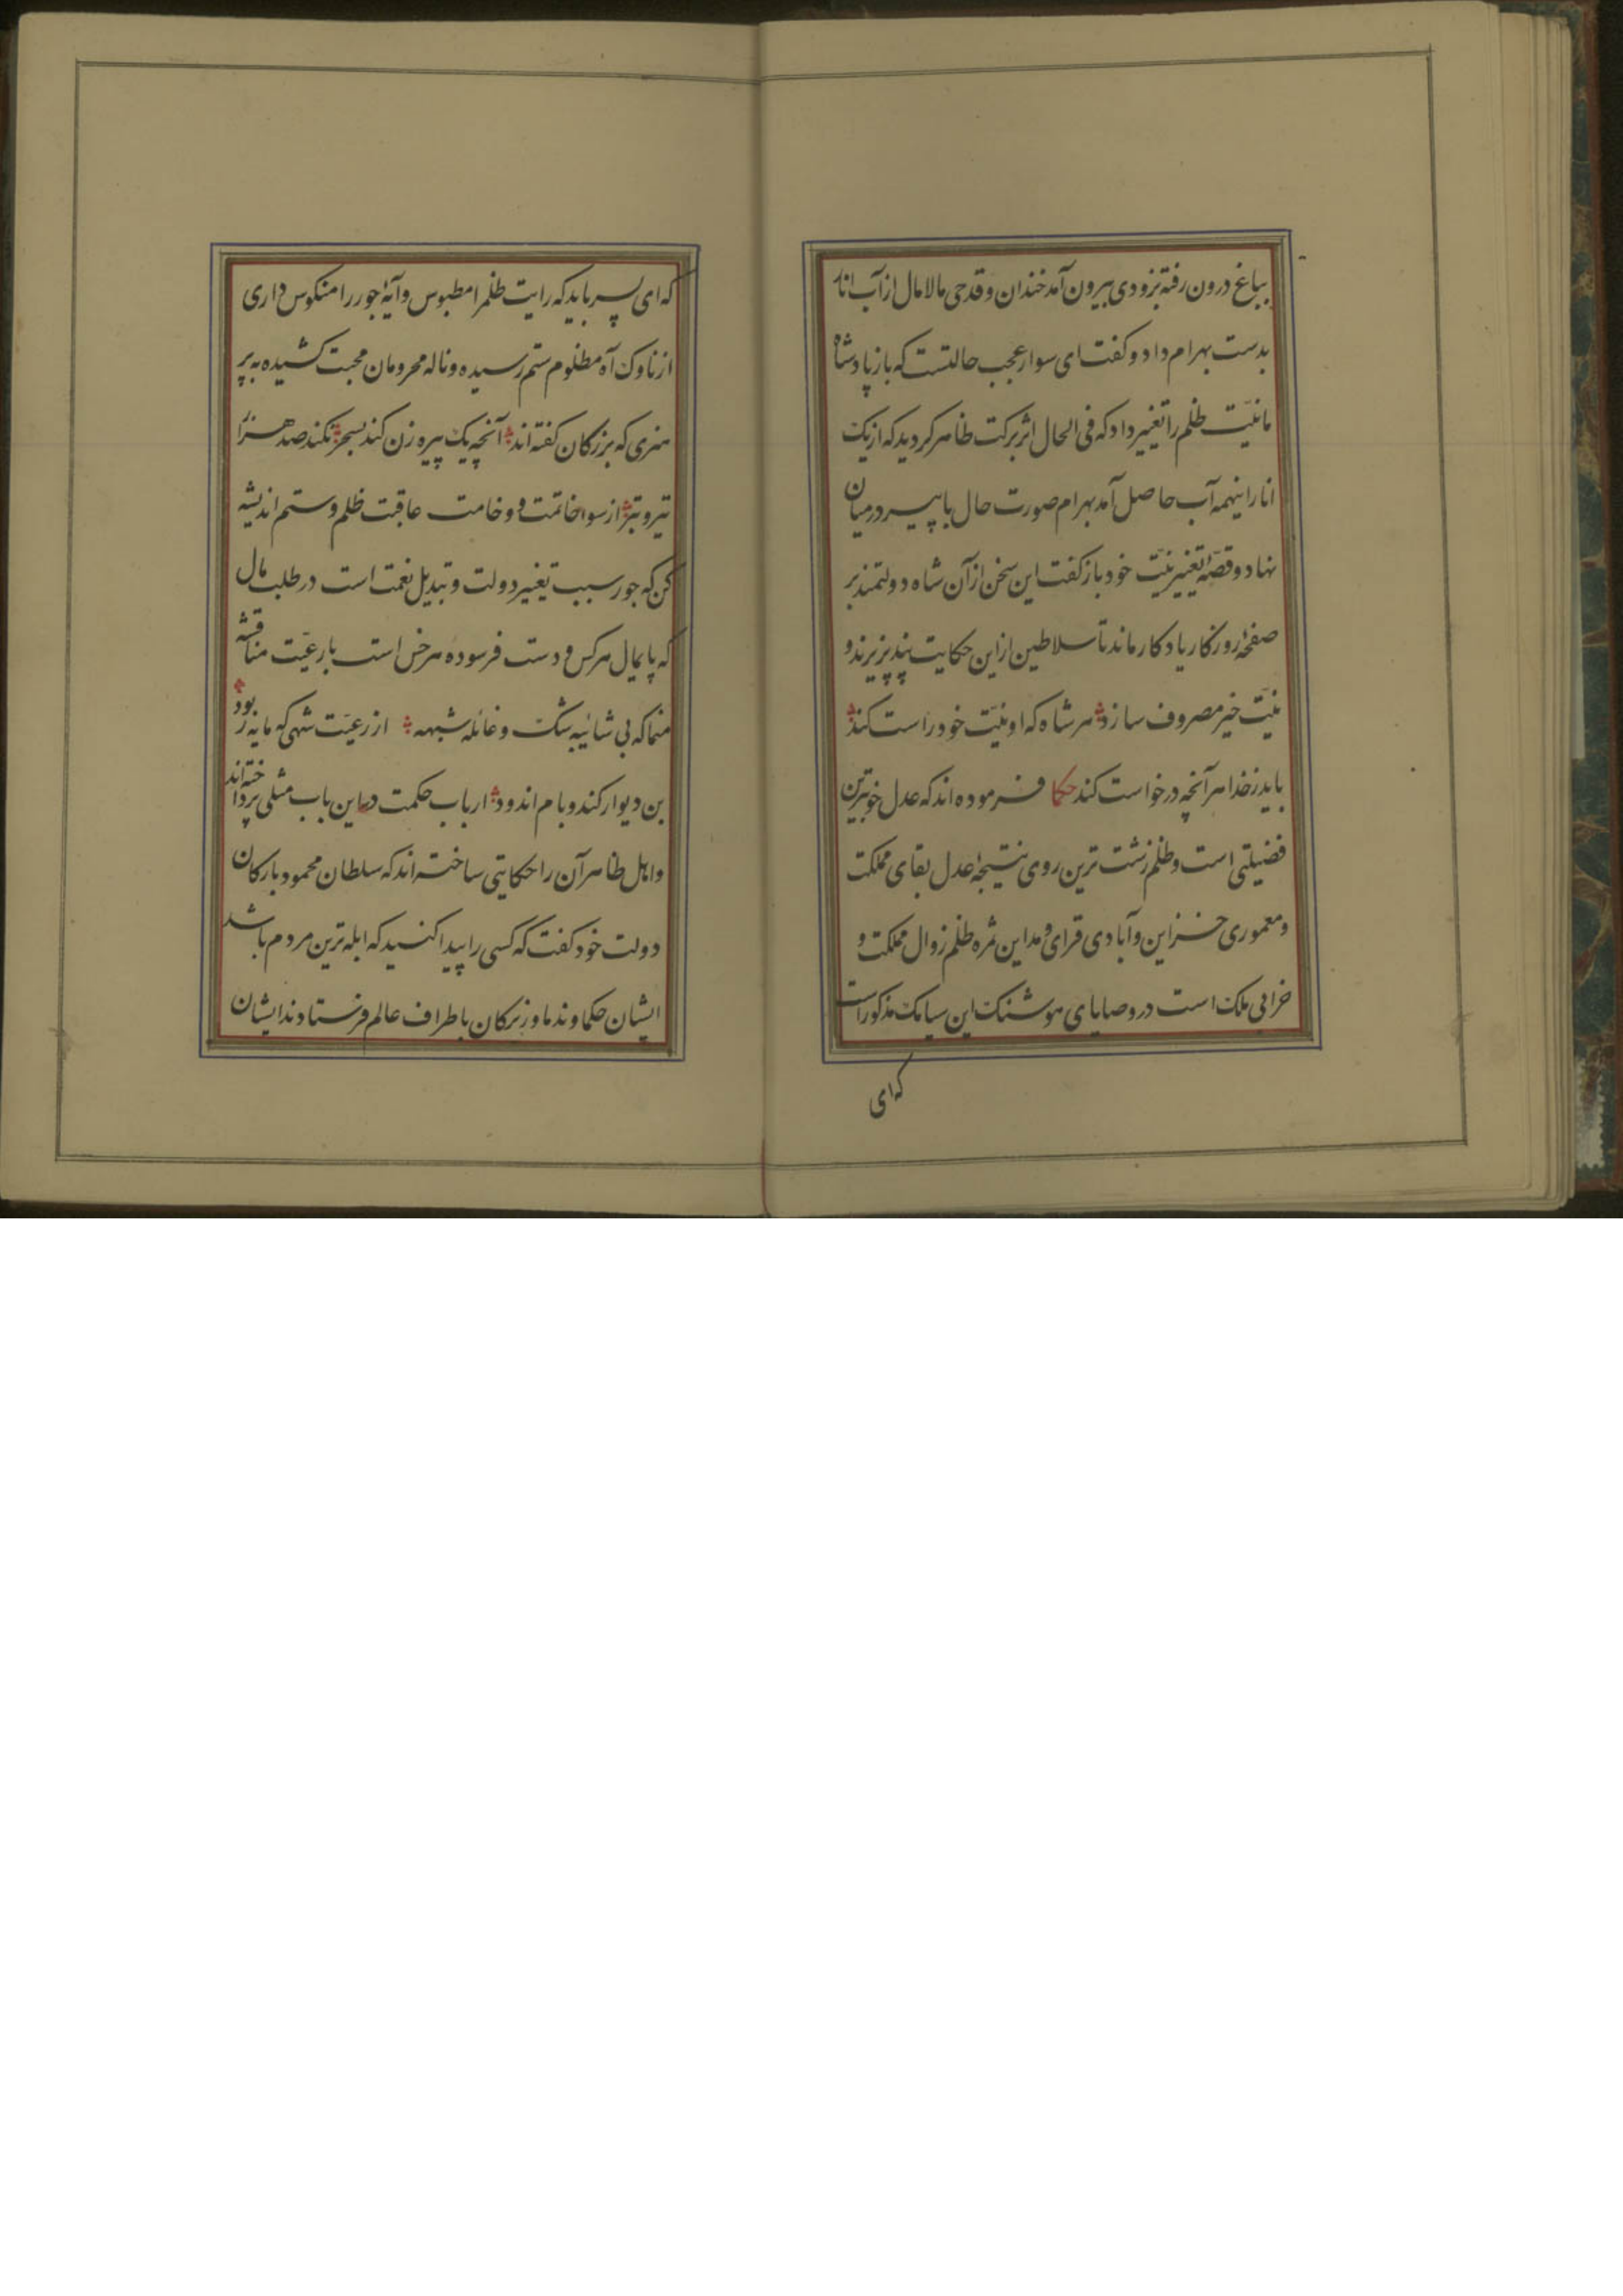 بباغ درون رفته بزودی بیرون آمد خندان و قدحی مالامال از آب انار
بدست بهرام داد و گفت ای سوار عجب حالتست که باز پادشاه
ما نیّت ظلم را تغییر داد که فی الحال اثر برکت ظاهر کردید که از یک
انار اینهمه آب حاصل آمد بهرام صورت حال با پیر در میان
نهاد و قصّهٔ تغییر نیّت خود باز کفت این سخن از آن شاه دولتمند بر
صفحهٔ روزکار یادکار ماند تا سلاطین از این حکایت پند پزیرند و
نیّت خیر مصروف سازد هر شاه که او نیّت خود راست کند
یابد ز خدا هر آنچه درخواست کند حکما فرموده اند که عدل خوبترین
فضیلتی است و ظلم زشت ترین روی نتیجهٔ عدل بقای مملکت
و معموری خزاین و آبادی قرای و مداین ثمره ظلم زوال مملکت و
خرابی ملک است در وصایای هوشنک ابن سیامک مذکور است
که ای
که ای پسر باید که رایت ظلم را مطبوس و آیهٔ جور را منکوس داری
از ناوک آه مظلوم ستم رسیده و ناله محرومان محبت کشیده به پر
هنری که بزرکان کفته اند آنچه یک پیره زن کند بسحر نکند صد هزار
تیر و تبر از سوا خاتمت و وخامت عاقبت ظلم و ستم اندیشه
کن که جور سبب تغییر دولت و تبدیل نعمت است در طلب مال
که پایمال هر کس و دست فرسوده هر خس است با رعیّت مناقشه
منما که بی شائبه شک و غائله شبهه از رعیّت شهی که مایه ربود
بن دیوار کند و بام اندود ارباب حکمت در این باب مثلی پرداخته اند
و اهل ظاهر آن را حکایتی ساخته اند که سلطان محمود با ارکان
دولت خود کفت که کسی را پیدا کنید که ابله ترین مردم باشد
ایشان حکما و ندما و زیرکان باطراف عالم فرستادند ایشان